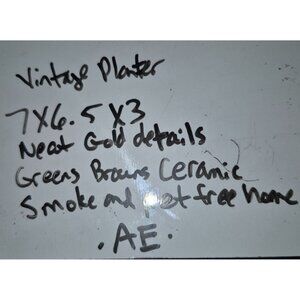 Vintage Planter
7X6.5X3
Neat Gold details
Greens Browns Ceramic
Smoke and pet free home
.AE.